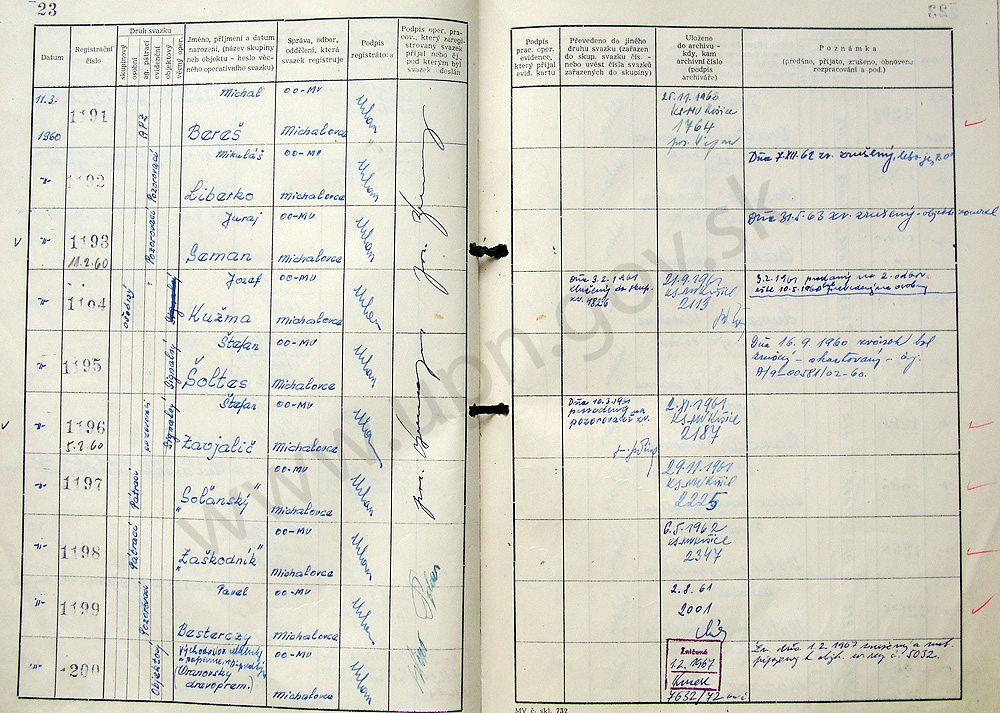 23
Datum
Registrační číslo
Druh svazku
skupinový
osobní
ag. pátrací
evidenční
objektový
věcný oper.
Jméno, příjmení a datum
narození, (název skupiny
neb objektu - heslo věc-
ného operativního svazku)
Správa, odbor,
oddělení, která
svazek registruje
Podpis
registrátora
Podpis oper. pra-
cov., který zaregi-
strovaný svazek
přijal nebo čj.,
pod kterým byl
svazek odeslán
Podpis
prac. oper.
evidence,
který přijal
evid. kartu
Převedeno do jiného
druhu svazku (zařazen
do skup. svazku čís. -
nebo uvést čísla svazků
zařazených do skupiny)
Uloženo
do archivu -
kdy, kam
archivní číslo
(podpis
archiváře)
Poznámka
(předáno, přijato, zrušeno, obnoveno
rozpracování a pod.)
11.3.
1960
1191
Michal
Bereš
OO-MV
Michalovce
25.11.1960
KS-MV Košice
1764
1192
Pozorovací
Mikuláš
Liberko
OO-MV
Michalovce
Dňa 7.XII.62 zv. zrušený,
1193
11.2.60
Pozorovací
Juraj
Seman
OO-MV
Michalovce
Dňa 31.5.63 zv. zrušený - objekt zomrel
1194
osobný
Signálny
Jozef
Kužma
OO-MV
Michalovce
Dňa 3.2.1961
zlúčený do skup.
zv. 1826
21.9.1961
KS-MV Košice
2113
3.2.1961 predaný na 2. odbor
1195
Signálny
Štefan
Šoltes
OO-MV
Michalovce
Dňa 16.9.1960 zväzok bol
zničený - skartovaný - č.j.
A/9-00581/02-60.
1196
5.2.60
Signálny
Štefan
Zavjalič
OO-MV
Michalovce
Dňa 10.3.1961
prevedený na
pozorovací zv.
2.XI.1961
KS-MV Košice
2187
1197
Pátrací
"Soľanský"
OO-MV
Michalovce
29.11.1961
KS-MV Košice
2225
1198
Pátrací
"Zaškodník"
OO-MV
Michalovce
6.5.1962
KS-MV Košice
2347
1199
Pozorovací
Pavel
Besterczy
OO-MV
Michalovce
2.8.61
2001
1200
Objektový
(Vranovský
dravoprem.)
OO-MV
Michalovce
Zničené
1.2.1967
7632/72
Zv. dňa 1.2.1967 zrušený a
pripojený k objkt. zv. reg. č. 5032.
MV č. skl. 732
www.upn.gov.sk